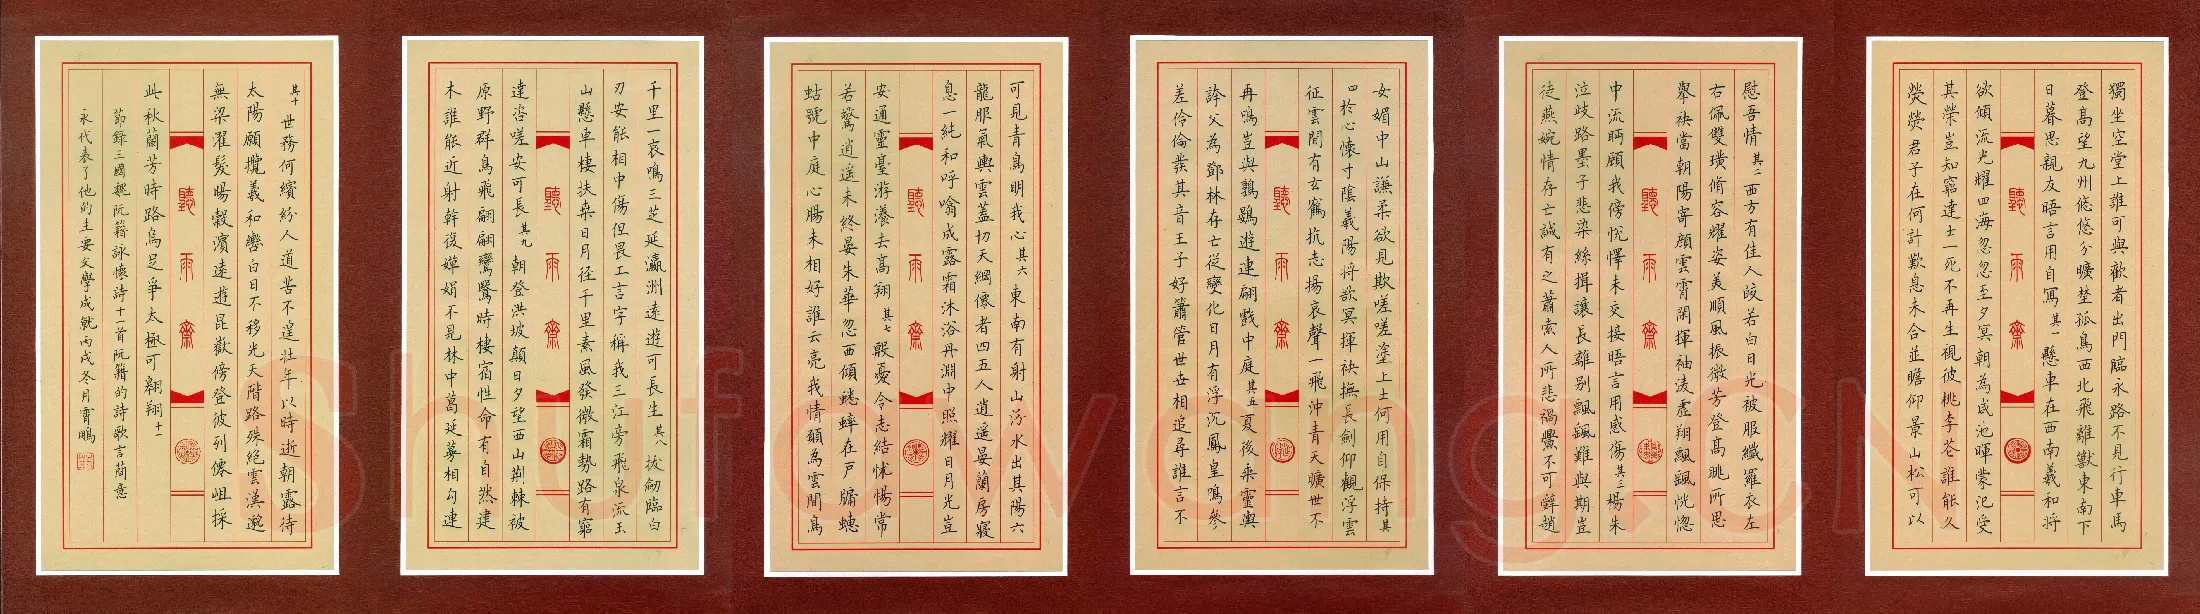 獨坐空堂上誰可與歡者出門臨永路不見行車馬
登高望九州悠悠分曠埜孤鳥西北飛離獸東南下
日暮思親友晤言用自寫其一懸車在西南羲和將
聽雨齋
欲傾流光耀四海忽忽至夕冥朝為咸池暉蒙汜受
其榮豈知窮達士一死不再生視彼桃李花誰能久
熒熒君子在何計歎息未合並瞻仰景山松可以
慰吾情其二西方有佳人皎若白日光被服纖羅衣左
右佩雙璜脩容耀姿美順風振微芳登高眺所思
舉袂當朝陽寄顏雲霄閒揮袖淩虛翔飄颻恍惚
聽雨齋
中流眄顧我傍悅懌未交接晤言用感傷其三楊朱
泣歧路墨子悲染絲揖讓長離別飄颻難與期豈
徒燕婉情存亡誠有之蕭索人所悲禍釁不可辭趙
女媚中山謙柔欲見欺嗟嗟塗上士何用自保持其
四於心懷寸陰羲陽將欲冥揮袂撫長劍仰觀浮雲
征雲間有玄鶴抗志揚哀聲一飛沖青天曠世不
聽雨齋
再鳴豈與鶉鷃遊連翩戲中庭其五夏後乘靈輿
誇父為鄧林存亡從變化日月有浮沉鳳皇鳴參
差伶倫發其音王子好簫管世世相追尋誰言不
可見青鳥明我心其六東南有射山汾水出其陽六
龍服氣輿雲蓋切天綱僊者四五人逍遙晏蘭房寢
息一純和呼噏成露霜沐浴丹淵中照耀日月光豈
聽雨齋
安通靈臺游瀁去高翔其七殷憂令志結怵惕常
若驚逍遙未終晏朱華忽西傾蟋蟀在戶牖蟪
蛄號中庭心腸未相好誰云亮我情願為雲間鳥
千里一哀鳴三芝延瀛洲遠遊可長生其八拔劍臨白
刃安能相中傷但畏工言字稱我三江旁飛泉流玉
山懸車棲扶桑日月徑千里素風發微霜勢路有窮
聽雨齋
達咨嗟安可長其九朝登洪坡顛日夕望西山荊棘被
原野群鳥飛翩翩鸞鷖時棲宿性命有自然建
木誰能近射幹復嬋娟不見林中葛延蔓相勾連
其十世務何繽紛人道苦不遑壯年以時逝朝露待
太陽願攬羲和轡白日不移光天階路殊絕雲漢邈
無梁濯髮暘穀濱遠遊昆嶽傍登彼列僊岨採
聽雨齋
此秋蘭芳時路烏足爭太極可翱翔十一
節錄三國魏阮籍詠懷詩十一首阮籍的詩歌言簡意
永代表了他的主要文學成就丙戌冬月霄鵬
Shufawang.CN